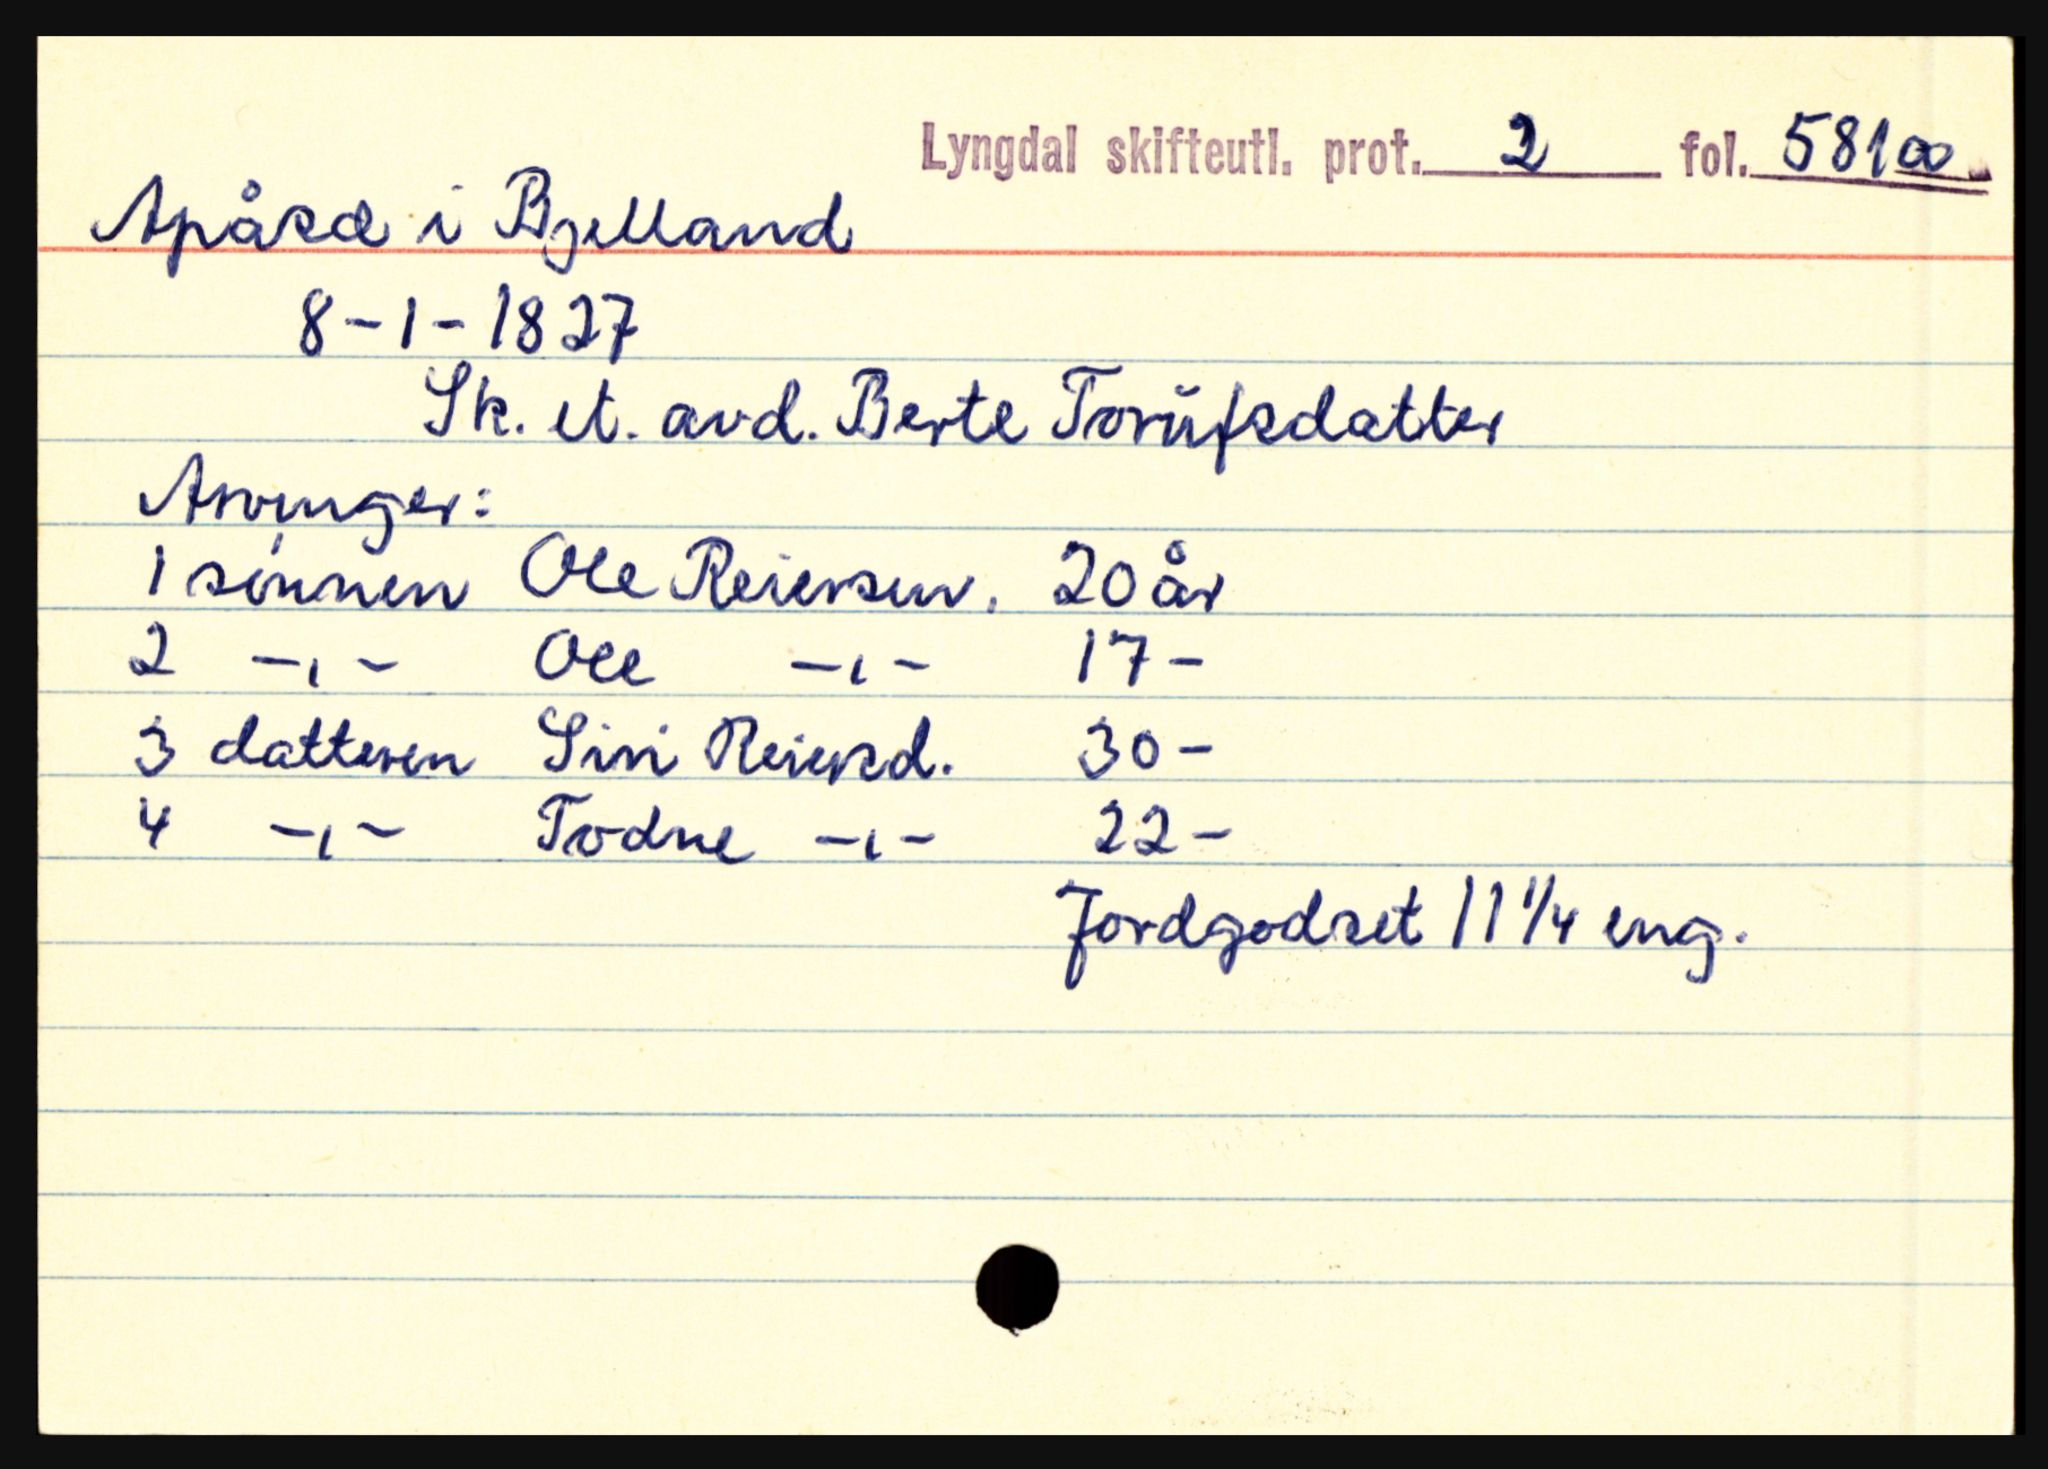 Lyngdal skifteutl. prot. 2 fol. 58100
Apåsæ i Bjelland
8-1-1827
Sk. et. avd. Berte Torŭfsdatter
Arvinger:
1 sönnen Ole Reiersen. 20 år
2 -„- Ole -„- 17-
3 datteren Siri Reiersd. 30-
4 -„- Todne -„- 22-
Jordgodset 11 1/4 eng.